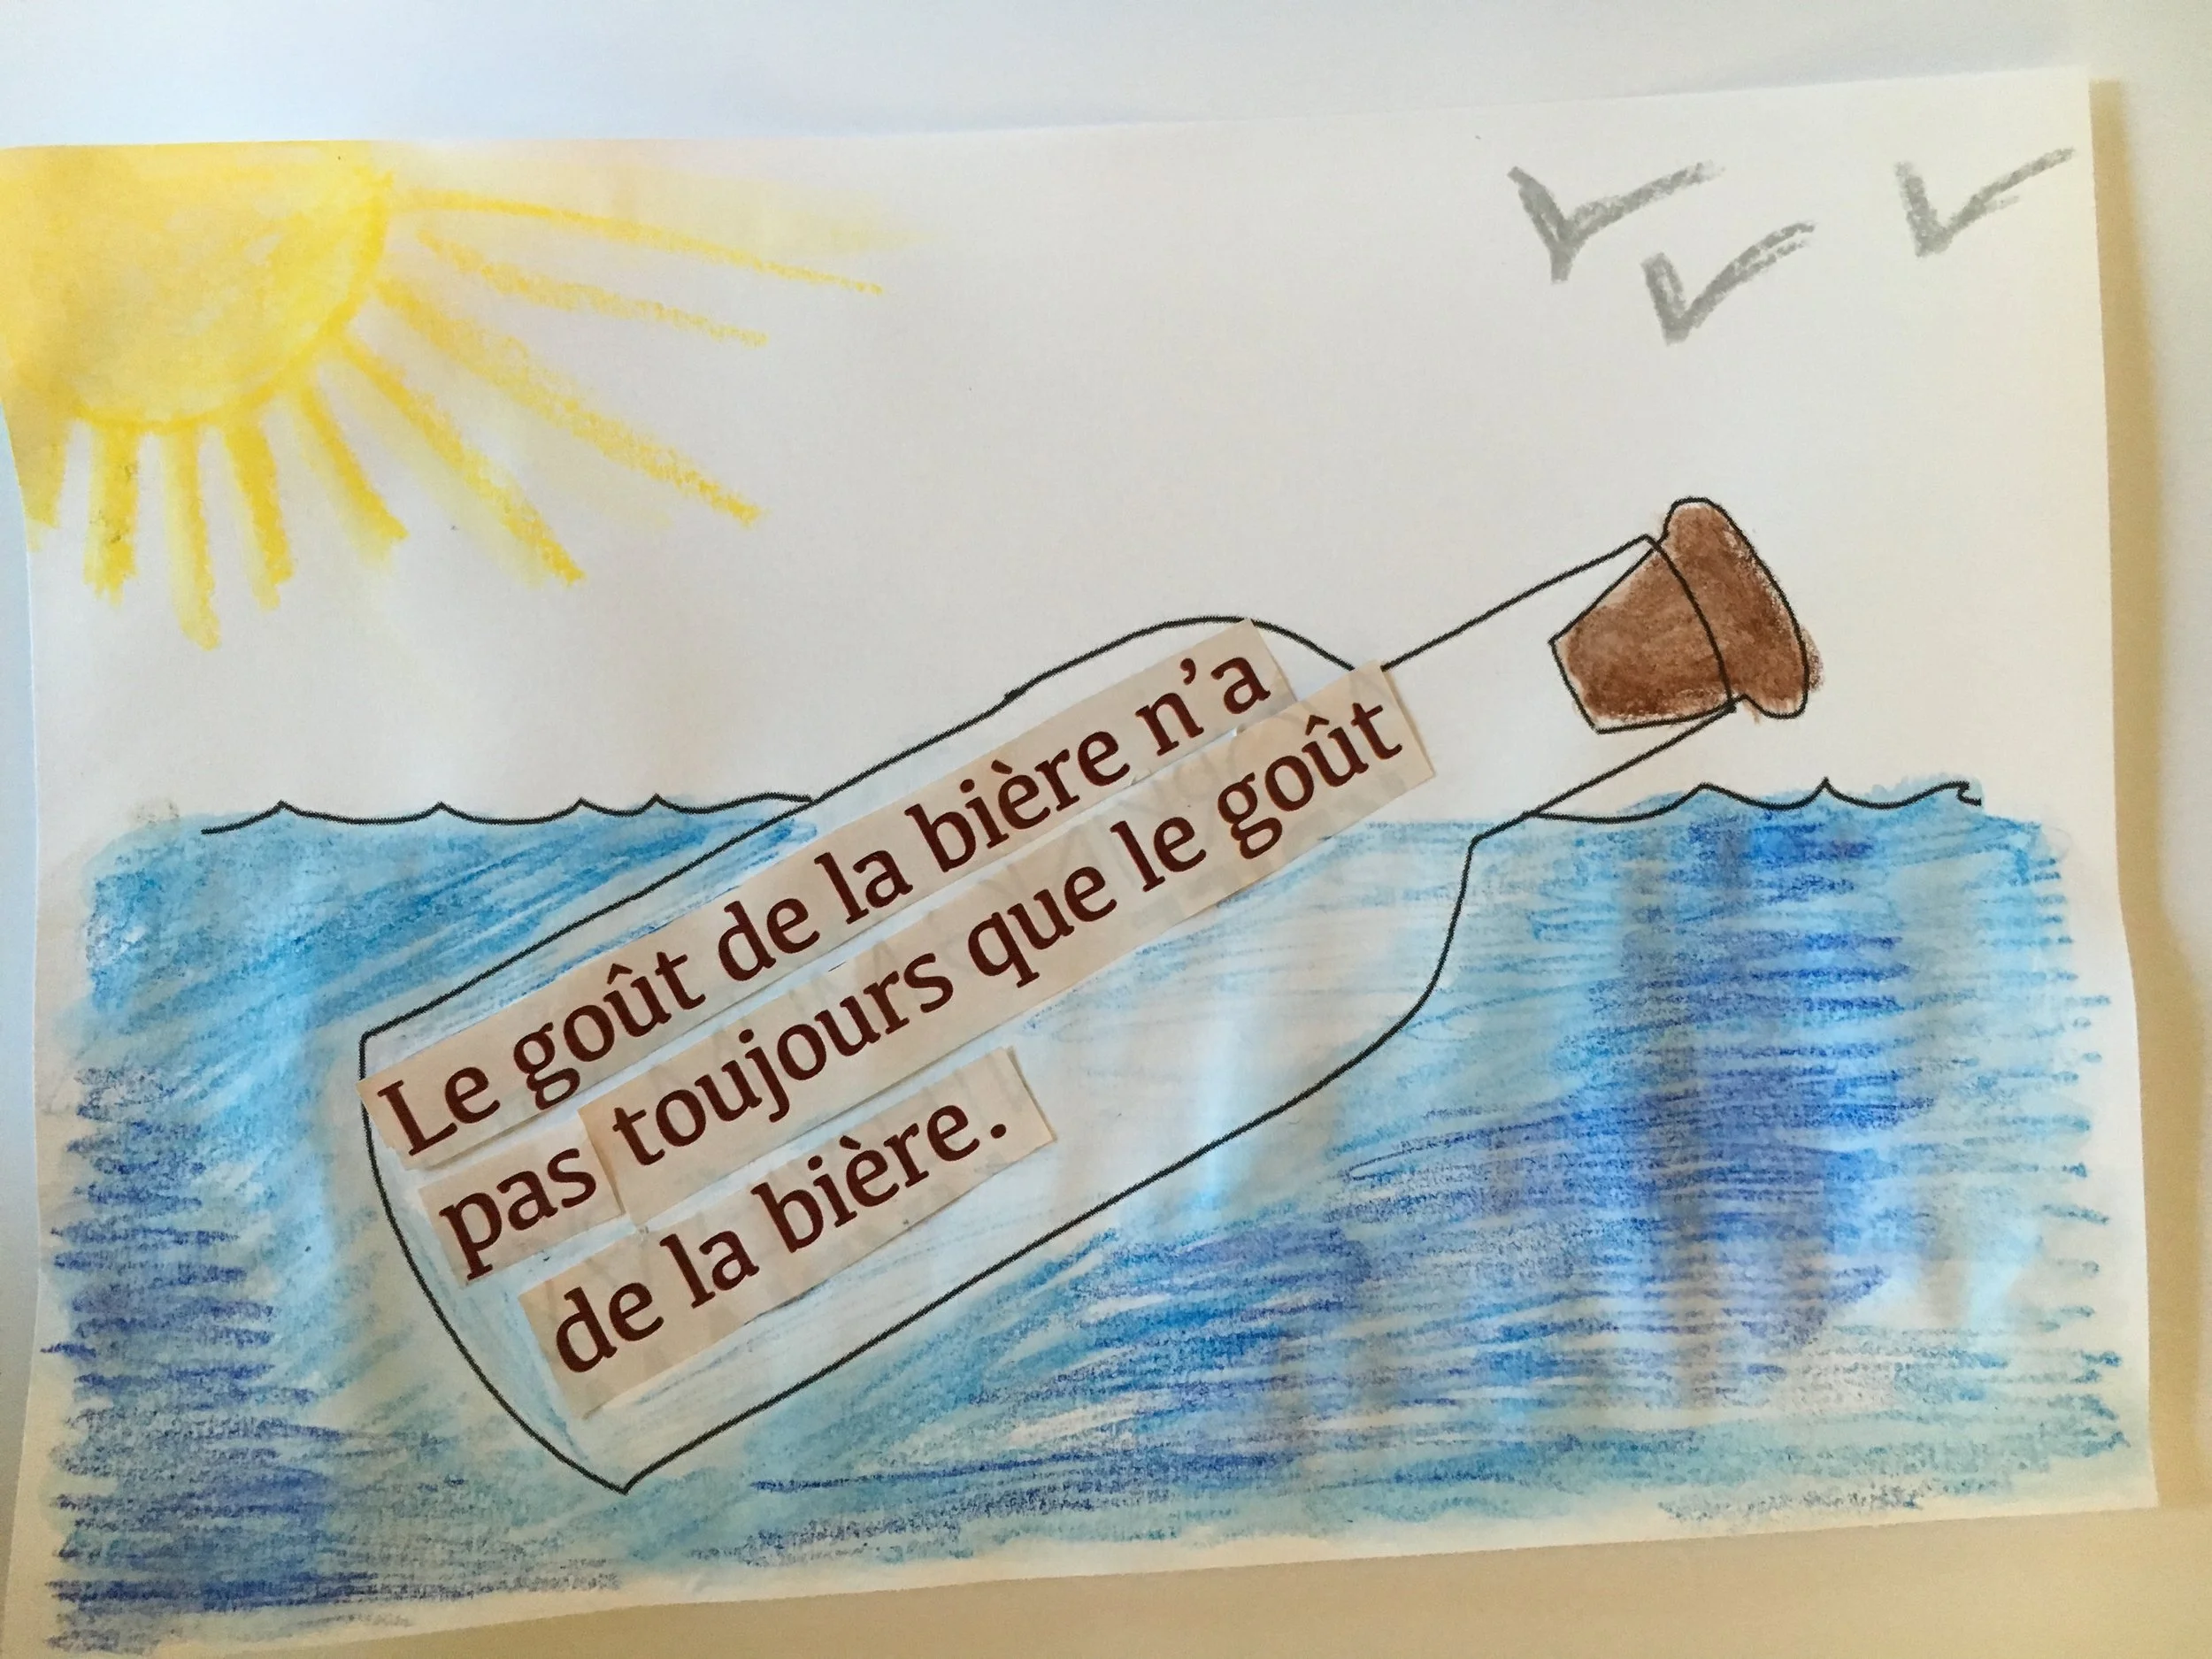 Le goût de la bière n'a
pas toujours que le goût
de la bière.